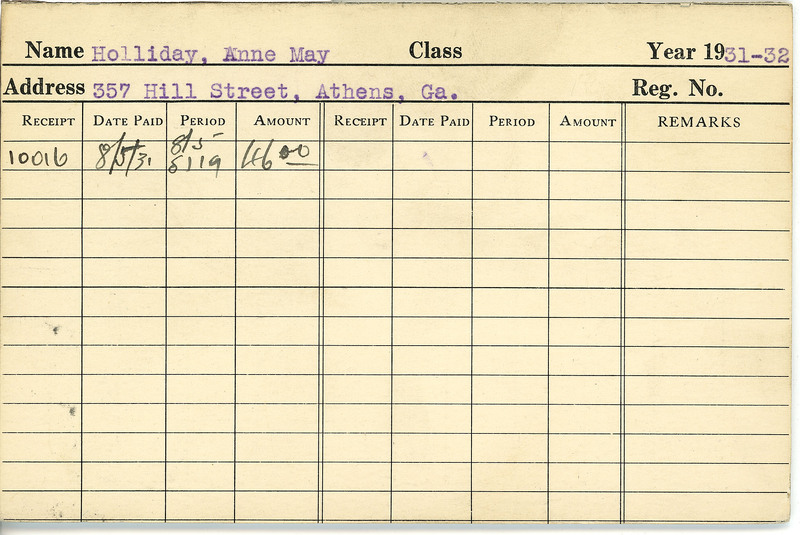 Name Holliday, Anne May Class Year 1931-32
Address 357 Hill Street, Athens, Ga. Reg. No.
RECEIPT DATE PAID PERIOD AMOUNT RECEIPT DATE PAID PERIOD AMOUNT REMARKS
8/5
10016 8/5/31 8119 46 00